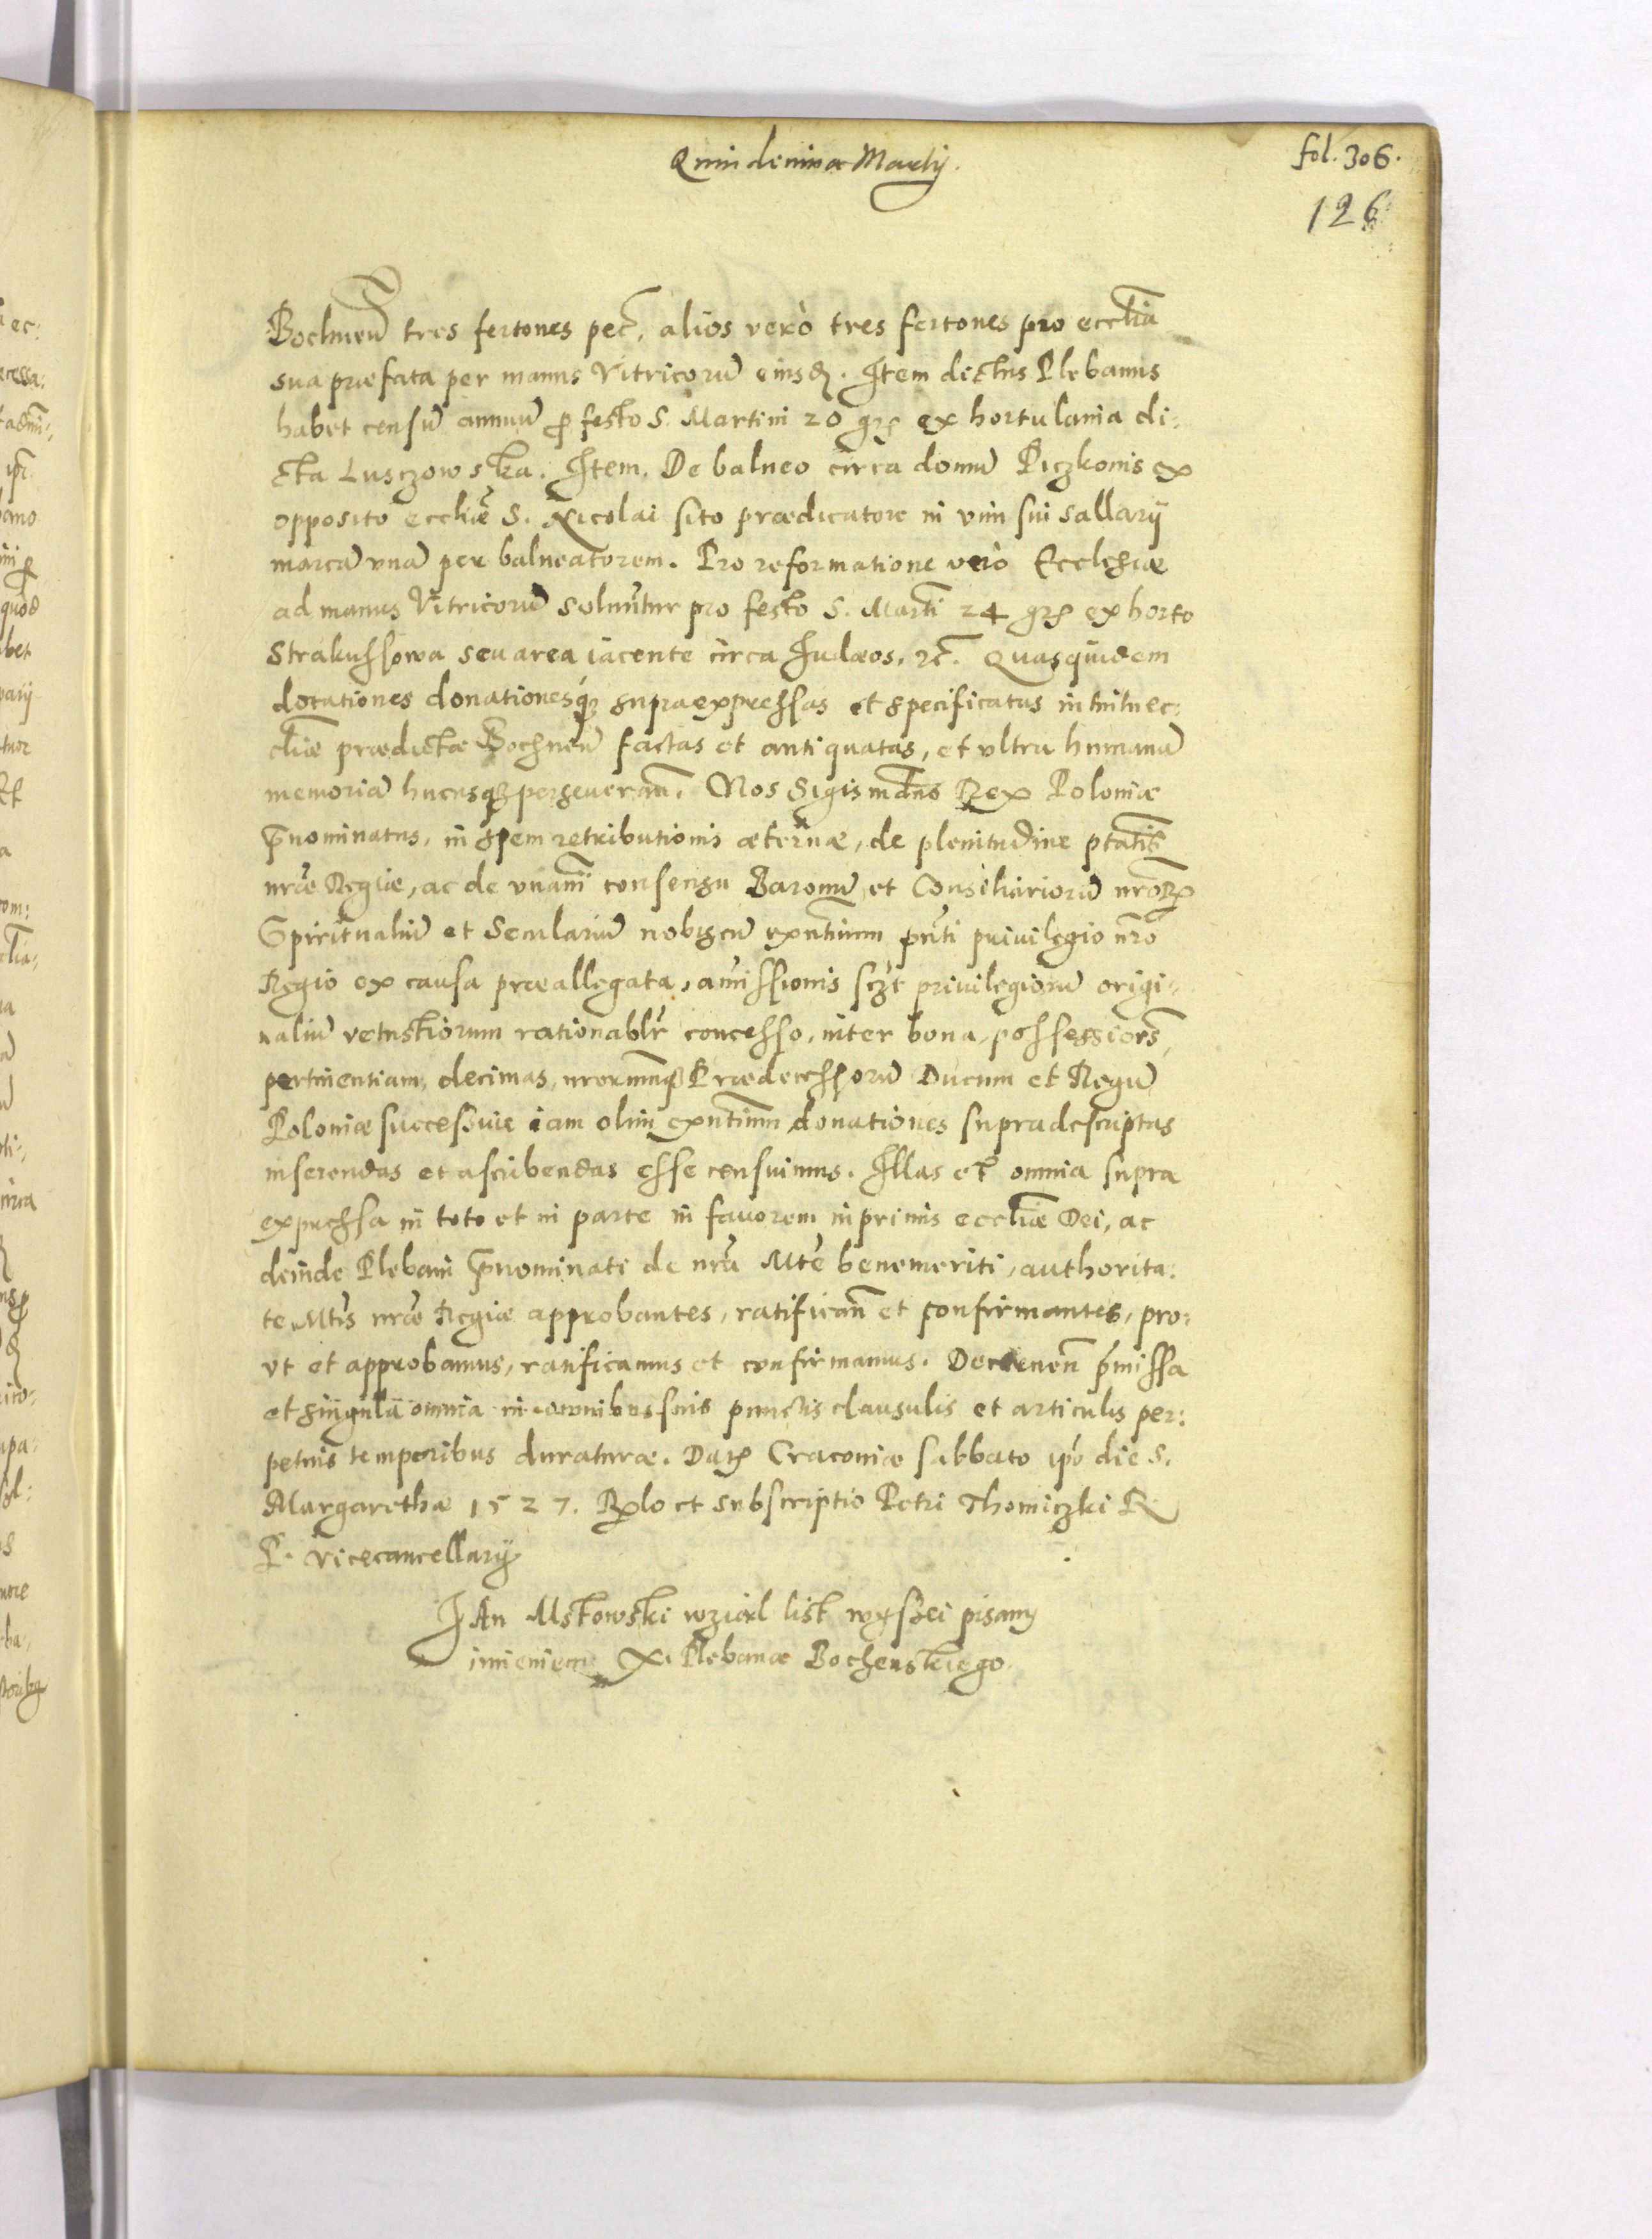 Quindenna Martij.
fol. 306.
126
Bochnen̄ tres fertones pec̄. alios verò tres fertones pro ecclīa
sua præfata per manus Vitricorū eiusd. Item dictus Plebanus
habet censū annuū ꝓ festo S. Martini 20 grꝭ ex hortulania di-
cta Lusczowska. Item. De balneo circa domū Piczkonis ex
opposito ecclīæ S. Nicolai sito prædicatore in vim sui sallarij
marcā vnā per balneatorem. Pro reformatione verò Ecclesiæ
ad manus Vitricorū soluūtur pro festo S. Marti 24 grꝭ ex horto
Strakussowa seu area iacente circa Iudæos, ꝛc̄. Quasquidem
dotationes donationesqꝫ supraexpressas et specificatas intuitu ec:
clīæ prædictæ Bochnen̄ factas et antiquatas, et vltra humanā
memoriā hucusqꝫ perseueran̄. Nos Sigismūdus Rex Poloniæ
p̄nominatus, in spem retributionis æternæ, de plenitudine ptātis
nr̄æ Regiæ, ac de vnāmi consensu Baronū et Consiliariorū nr̄oꝝ
Spiritualiū et Seculariū nobiscū exn̄tium pn̄ti priuilegio nr̄o
Regio ex causa præallegata, amissionis sczt priuilegiorū origi-
naliū vetustiorum rationablr̄ concesso, inter bona, possessiões,
pertinentiam, decimas, nrorumqꝫ Prædecessorū Ducum et Regū
Poloniæ successiue iam olim exn̄tium donationes supradescriptas
inserendas et ascribendas esse censuimus. Illas et omnia supra
expressa in toto et in parte in fauorem inprimis ecclīæ Dei, ac
deinde Plebani p̄nominati de nr̄a Mte benemeriti, authorita:
te Mtis nr̄æ Regiæ approbantes, ratifican̄ et confirmantes, pro:
vt et approbamus, ratificamus et confirmamus. Decernen̄ p̄missa
et singula omnia in omnibus suis punctis clausulis et articulis per:
petuis temporibus duraturæ. Datꝭ Cracouiæ sabbato ipō die S.
Margarethæ 1527. Rѐlo et subscriptio Petri Thomiczki R
P. Vicecancellarij
JAn Mstowski wziąl list wysszei pisany
imieniem X. Plebana Bochenskiego.